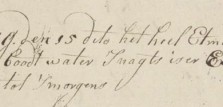 9. den 15 dito het heel Etm
Coodt water Snagts is er E
tot Smorgens